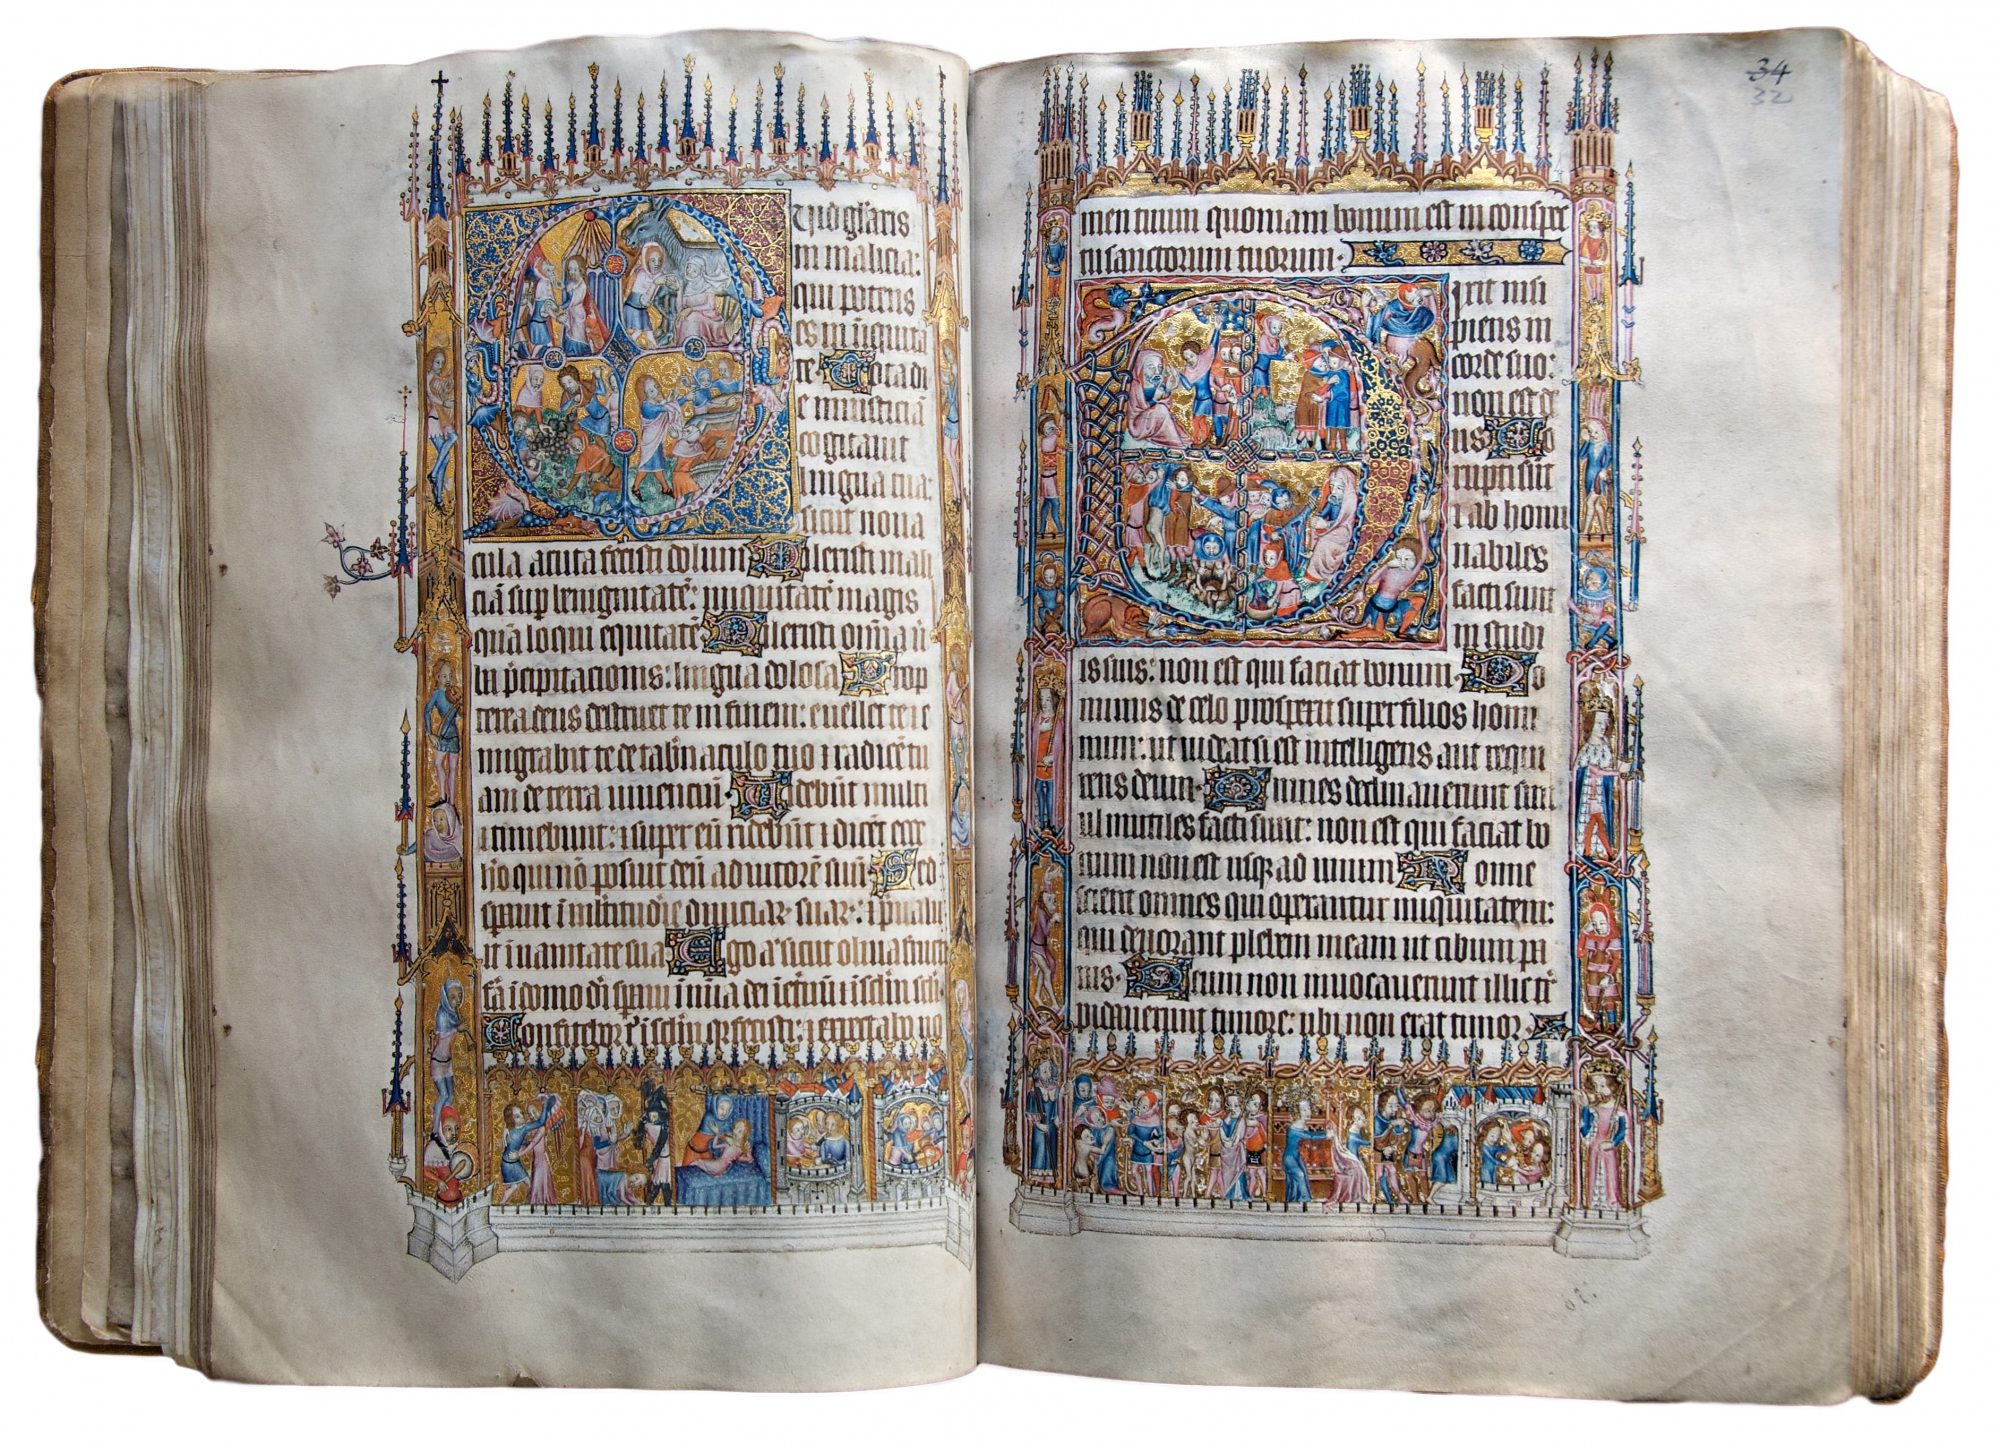 Quid gl'iaris
in malicia:
qui potens
es in iniquita
te Tota di
e iniusticiā
cogitavit
lingua tua:
sicut nova
cula acuta fecisti dolum Dilexisti mali
ciā sup benignitatē: iniquitatē magis
quā loqui equitatē Dilexisti omīa v̄
ba p̄cipitacionis: lingua dolosa Prop
terea deus destruet te in finem: evellet te ⁊ e
migrabit te de tab'naculo tuo ⁊ radicē tu
am de terra viventiū. Videbūt iusti
⁊ timebunt: ⁊ super eū ridebūt ⁊ dicēt ecce
hō qui nō posuit deū adiutorē suū Sed
spavit ī mltitudīe diviciaꝝ suaꝝ: ⁊ p̄valu
it ī vanitate sua Ego āt sicut oliva fructi
fa ī domo dī spavi ī mīa dei ī et'nū ⁊ ī sclm scli.
Confitebor t' ī sclm qr fecisti: ⁊ expectabo no
34
32
men tuum quoniam bonum est in conspec
tu sanctorum tuorum.
Dixit insi
piens in
corde suo:
non est de
us Co
rupti sūt
⁊ abhomi
nabiles
facti sunt
in studi
is suis: non est qui faciat bonum. Do
minus de celo prospexit super filios homi
num: ut videat si est intelligens aut requi
rens deum. Omnes declinaverunt sim
ul inutiles facti sunt: non est qui faciat bo
num non est usqꝫ ad unum Nonne
scient omnes qui operantur iniquitatem:
qui devorant plebem meam ut cibum pa
nis. Deum non invocaverunt illic t'
pidaverunt timore: ubi non erat timor.